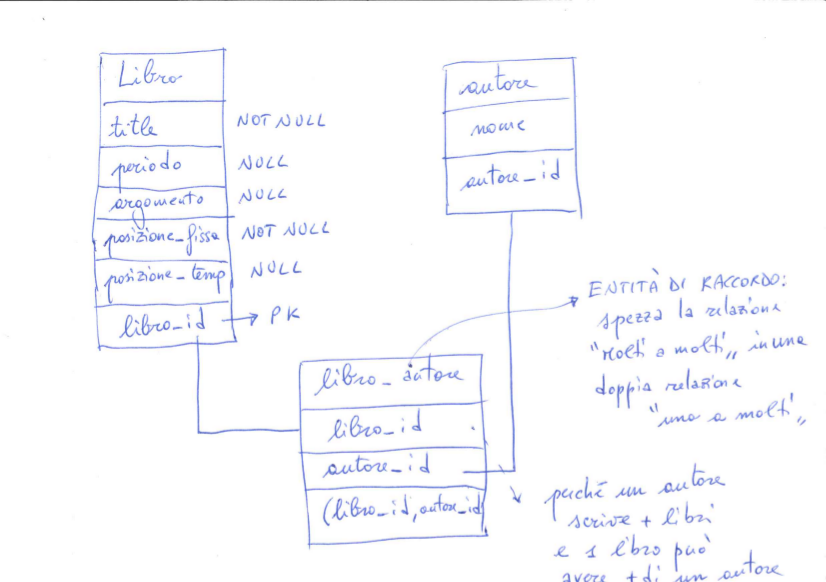 Libro
title NOT NULL
periodo NULL
argomento NULL
posizione_fissa NOT NULL
posizione_temp NULL
libro_id → PK
autore
nome
autore_id
libro_autore
libro_id
autore_id
(libro_id, autore_id
ENTITÀ DI RACCORDO:
spezza la relazione
"molti a molti„ in una
doppia relazione
"uno a molti„
perché un autore
scrive + libri
e 1 libro può
avere + di un autore